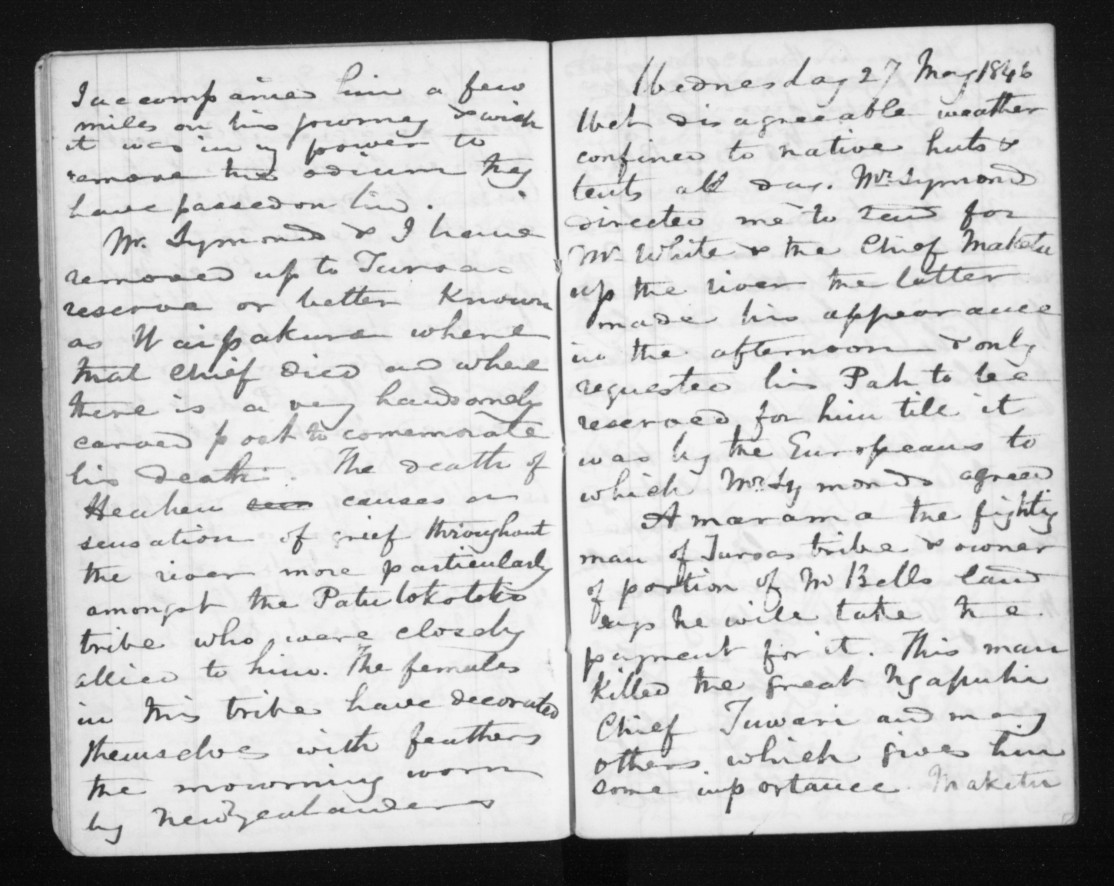 I accompanied him a few
miles on his journey & wish
it was in my power to
remove the odium they
have passed on him.
Mr. Symonds & I have
removed up to Turoas
reserve or better known
as Waipakura where
that chief died and where
there is a very handsomely
carved post to comemorate
his death. The death of
Heaheu causes a
sensation of grief throughout
the river more particularly
amongst the Patutokotoko
tribe who were closely
allied to him. The females
in this tribe have decorated
themselves with feathers
the mowrning worn
by Newzealanders
Wednesday 27 May 1846
Wet disagreeable weather
confined to native huts &
tents all day. Mr. Symond
directed me to send for
Mr White & the Chief Maketu
up the river the latter
made his appearance
in the afternoon & only
requested his Pah to be
reserved for him till it
was by the Europeans to
which Mr. Symonds agreed
Amarama the fighty
man of Turoas tribe & owner
of portion of Mr Bells land
says he will take the
payment for it. This man
killed the great Ngapuhi
Chief Tuwari and many
others which gives him
some importance. Maketu